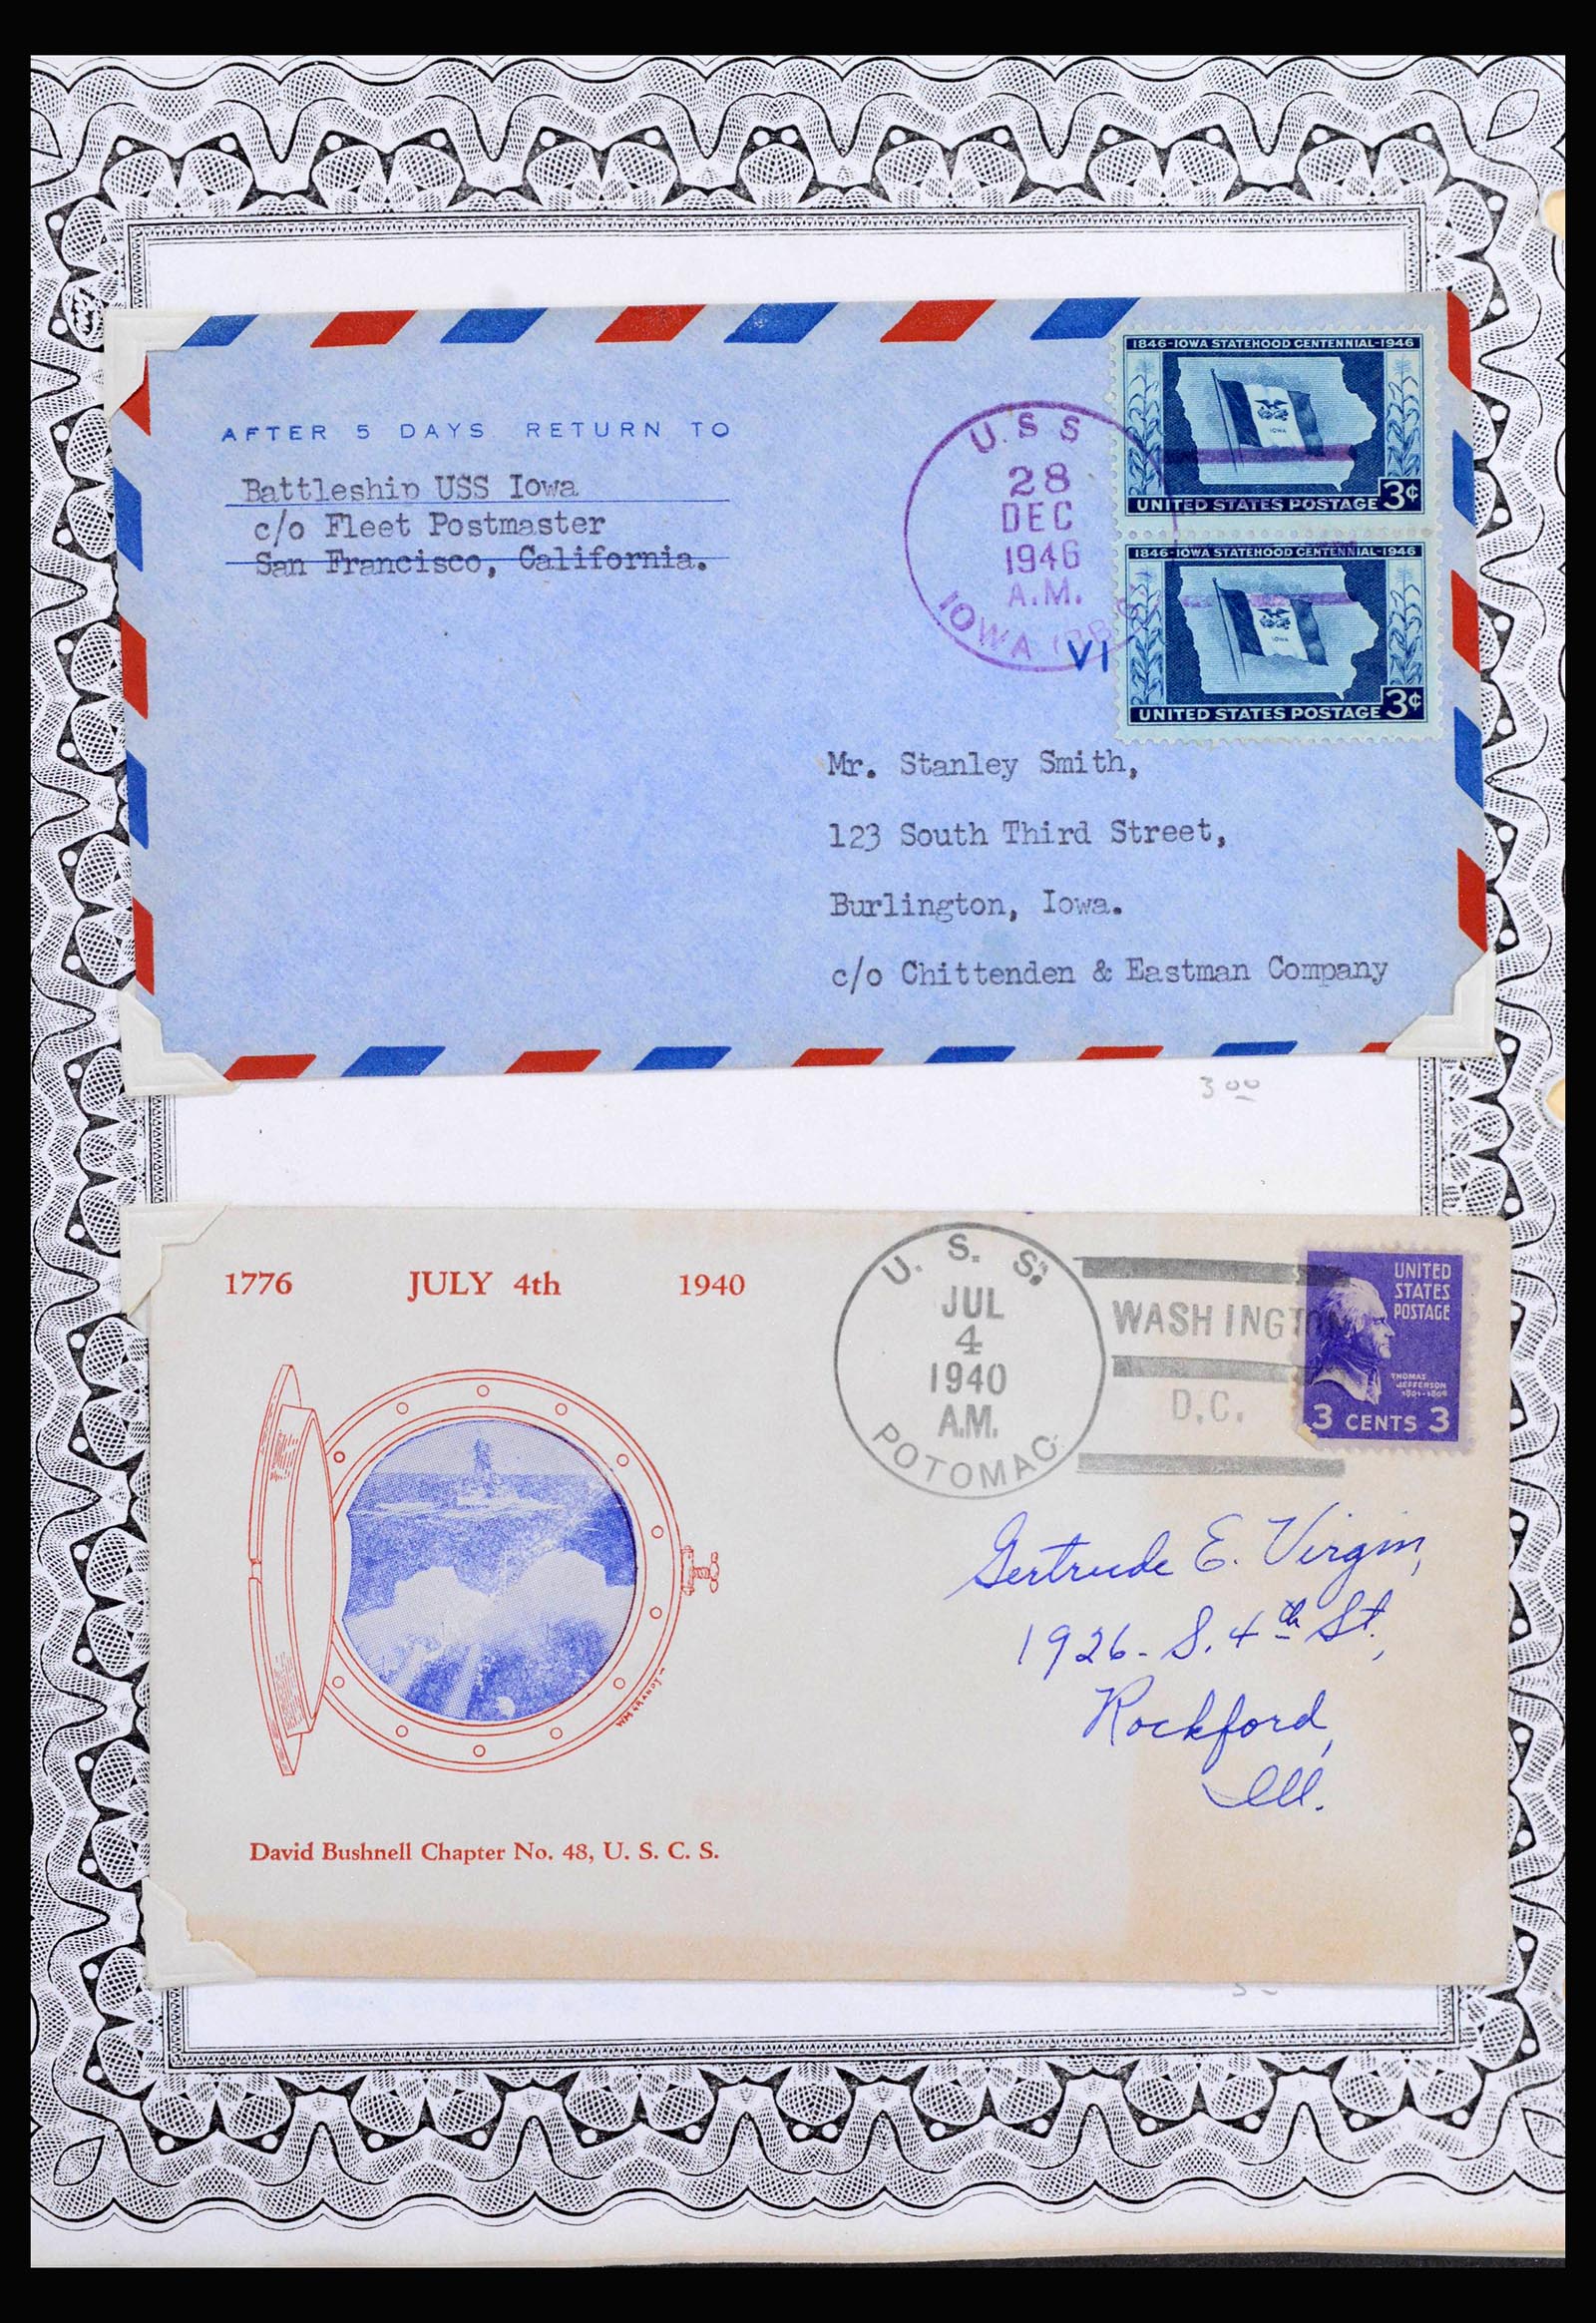 AFTER 5 DAYS RETURN TO
Battleship USS Iowa
c/o Fleet Postmaster
San Francisco, California.
U.S S
28
DEC
1946
A.M.
IOWA
VI
1846-IOWA STATEHOOD CENTENNIAL-1946
IOWA
UNITED STATES POSTAGE 3¢
1846-IOWA STATEHOOD CENTENNIAL-1946
IOWA
UNITED STATES POSTAGE 3¢
Mr. Stanley Smith,
123 South Third Street,
Burlington, Iowa.
c/o Chittenden & Eastman Company
3 00
1776 JULY 4th 1940
U. S. S.
JUL
4
1940
A.M.
POTOMAC
WASHINGTON
D.C.
UNITED
STATES
POSTAGE
THOMAS
JEFFERSON
1801-1809
3 CENTS 3
Gertrude E. Virgin,
1926- S. 4th St.,
Rockford,
Ill.
WM GRANDY
David Bushnell Chapter No. 48, U. S. C. S.